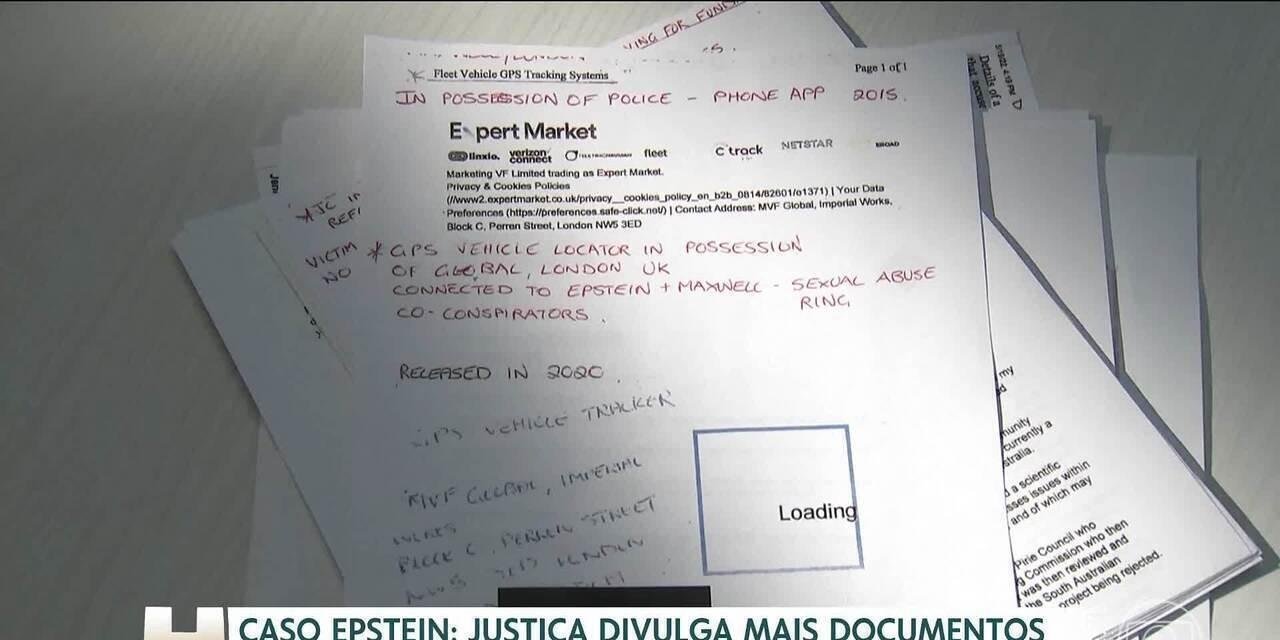 VING FOR FUN
* Fleet Vehicle GPS Tracking Systems
Page 1 of 1
IN POSSESSION OF POLICE - PHONE APP 2015.
Expert Market
linxio. verizon connect fleet ctrack NETSTAR
Marketing VF Limited trading as Expert Market.
Privacy & Cookies Policies
(//www2.expertmarket.co.uk/privacy__cookies_policy_en_b2b_0814/82601/e1371) | Your Data
Preferences (https://preferences.safe-click.net/) | Contact Address: MVF Global, Imperial Works,
Block C, Perren Street, London NW5 3ED
VICTIM
NO
* GPS VEHICLE LOCATOR IN POSSESSION
OF GLOBAL, LONDON UK
CONNECTED TO EPSTEIN + MAXWELL - SEXUAL ABUSE
RING
CO-CONSPIRATORS.
RELEASED IN 2020.
GPS VEHICLE TRACKER
MVF GLOBAL, IMPERIAL
BLOCK C. PERREN STREET
Loading
Details of a
my
munity
currently a
stralia.
a scientific
sses issues within
and of which may
Pirie Council who
g Commission who then
was then reviewed and
the South Australian
project being rejected.
CASO EPSTEIN: JUSTIÇA DIVULGA MAIS DOCUMENTOS